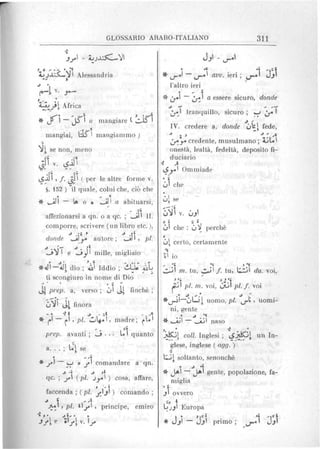 GLOSSARIO ARABO-ITALIANO 311
الإسكندرية - أمر
أمس - أول
الإسكندرية Alessandria
v.
إفريقية Africa
* أكل - أكل o mangiare ( أكلت
mangiai, أكلنا mangiammo )
إلا se non, meno
v. الذي
الذي, f. التي ( per le altre forme v.
§. 152 ) il quale, colui che, ciò che
* ألف - a abituarsi,
affezionarsi a qn. o a qc. ; ألف II.
comporre, scrivere ( un libro etc. ),
donde مؤلف autore ; ألف, pl.
آلاف e ألوف mille, migliaio
* إله dio ; الله Iddio ;
ti scongiuro in nome di Dio
إلى prep. a, verso ; إلى أن finchè ;
إلى الآن finora
* أم, pl. أمهات, madre ; أمام
prep. avanti ; أما quanto
a. . . : إما se
* أمر - أمر o comandare a qn.
qc. ; أمر ( pl. أمور ) cosa, affare,
faccenda ; ( pl. أوامر ) comando ;
أمير, pl. أمراء, principe, emiro
v.
* أمس avv. ieri ; أول أمس
l'altro ieri
* أمن - أمن a essere sicuro, donde
tranquillo, sicuro ;
IV. credere a, donde إيمان fede,
مؤمن credente, musulmano ; أمانة
onestà, lealtà, fedeltà, deposito fi-
duciario
Ommiade
أن che
إن se
الآن v.
أن che : لأن perchè
إن certo, certamente
أنا io
أنت m. tu, أنت f. tu, voi,
أنتم pl. m. voi, أنتن pl. f. voi
* إنسان uomo, pl. ناس, uomi-
ni, gente
* أنف naso
إنكليز coll. Inglesi ; إنكليزي un In-
glese, inglese ( agg. )
إنما soltanto, senonchè
* أهل gente, popolazione, fa-
miglia
أو ovvero
أوربا Europa
* أول primo ; أول أمس